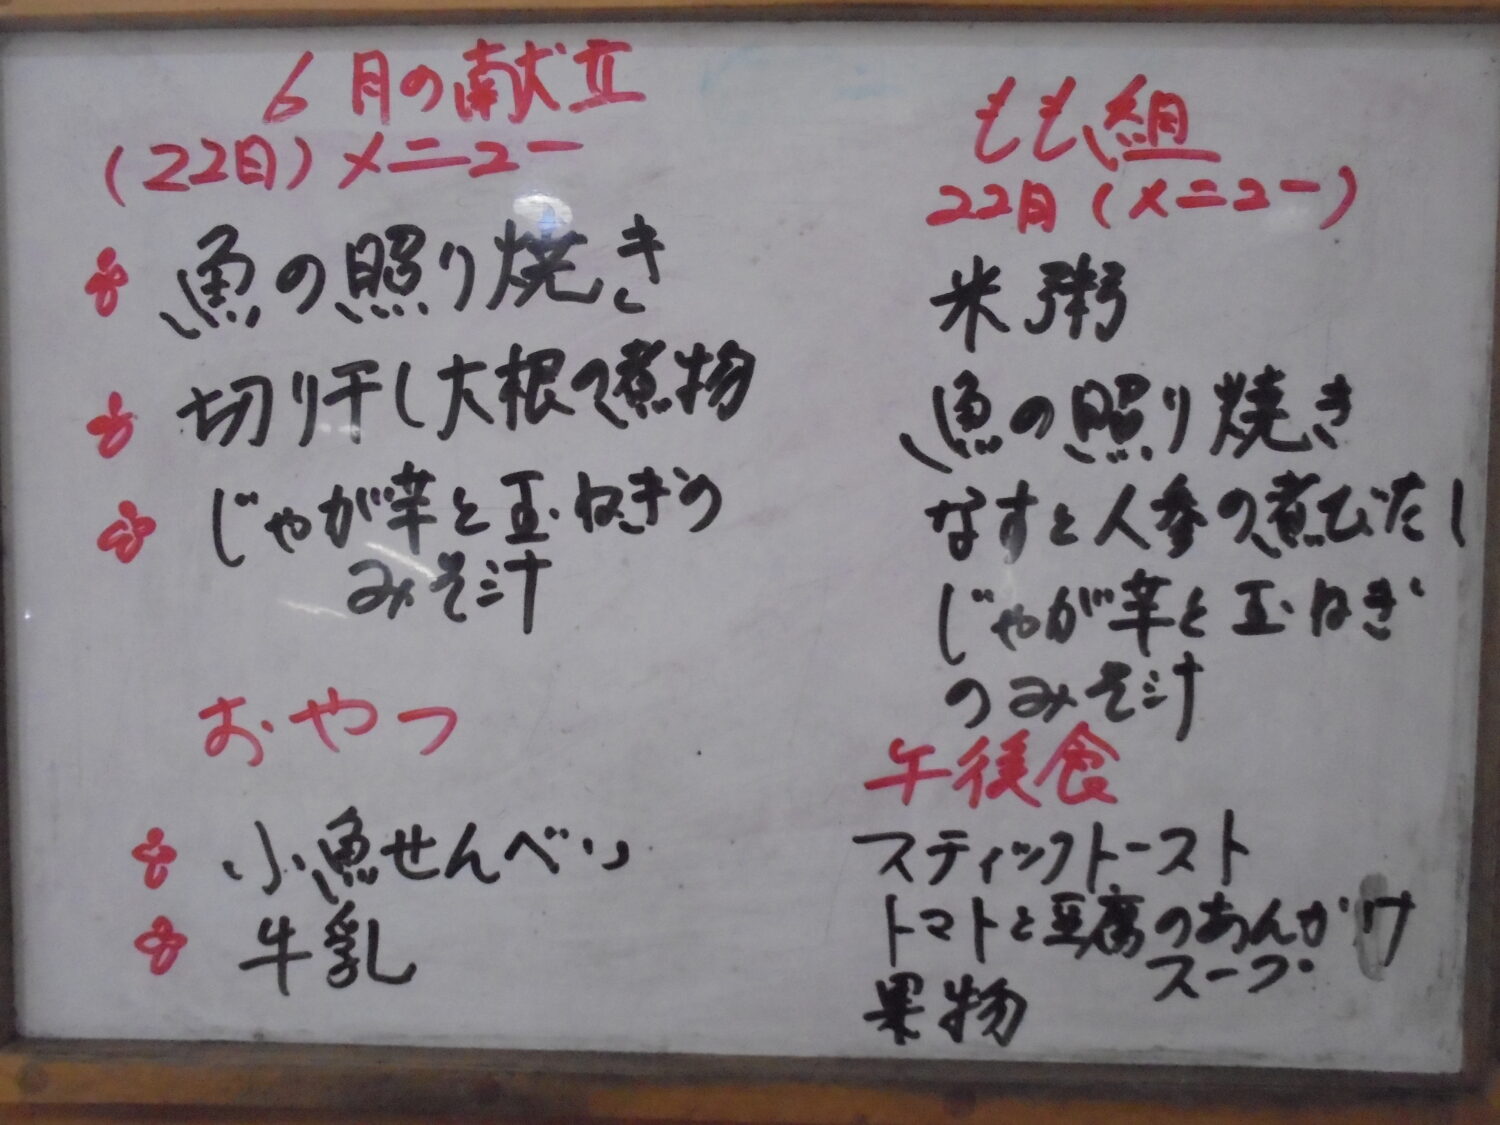 6月の献立
(22日)メニュー
魚の照り焼き
切り干し大根の煮物
じゃが芋と玉ねぎの
みそ汁
おやつ
小魚せんべい
牛乳
もも組
22日(メニュー)
米粥
魚の照り焼き
なすと人参の煮びたし
じゃが芋と玉ねぎ
のみそ汁
午後食
スティックトースト
トマトと豆腐のあんかけ
スープ
果物